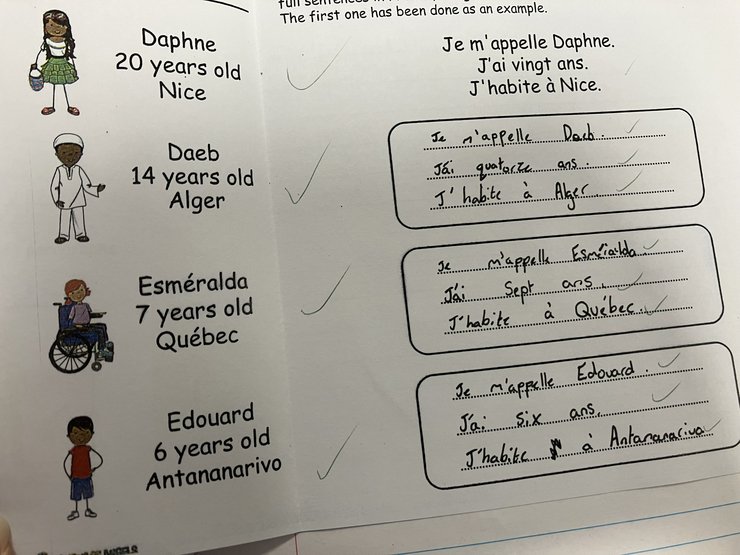 The first one has been done as an example.
Daphne
20 years old
Nice
Je m'appelle Daphne.
J'ai vingt ans.
J'habite à Nice.
Daeb
14 years old
Alger
Je m'appelle Daeb.
J'ái quatorze ans.
J'habite à Alger
Esméralda
7 years old
Québec
Je m'appelle Esméralda.
J'ái Sept ans.
J'habite à Québec.
Edouard
6 years old
Antananarivo
Je m'appelle Edouard.
J'ai six ans.
J'habite à Antananarivo